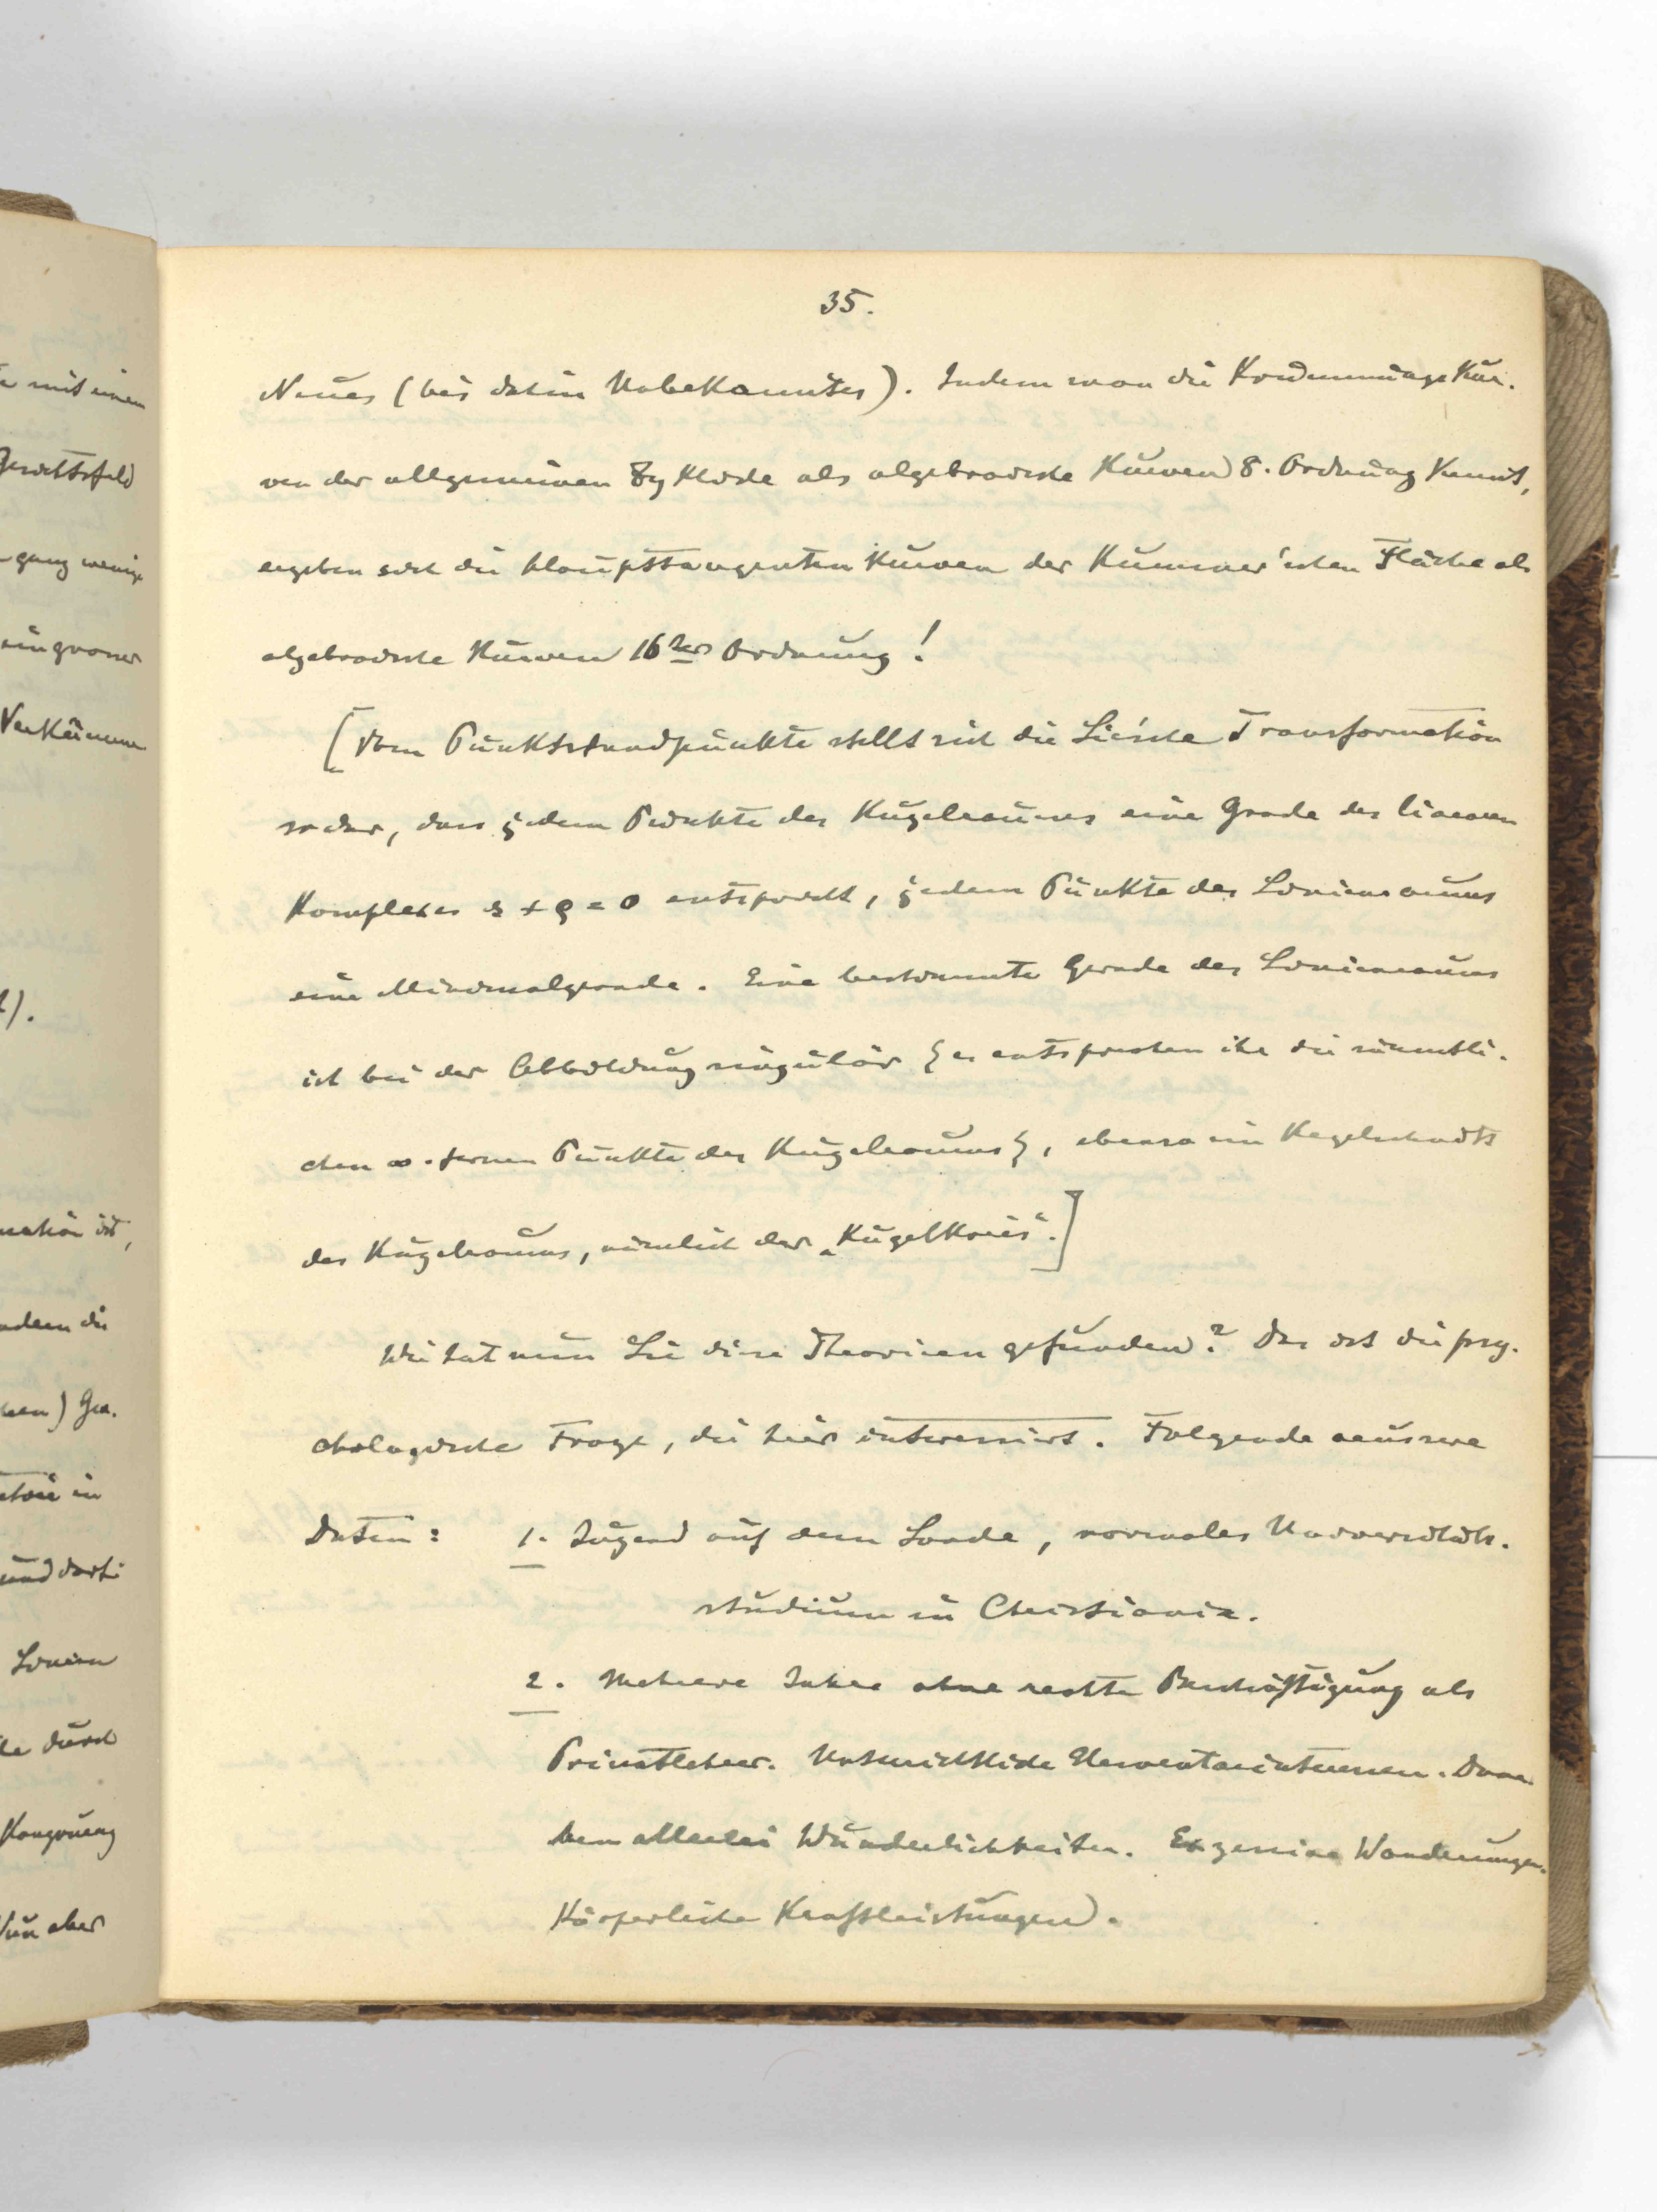 35.
Neues (bis dahin Unbekanntes). Indem man die Krümmungskur-
ven der allgemeinen Zyklide als algebraische Kurven 8. Ordnung kennt,
ergeben sich die Haupttangentenkurven der Kummer'schen Fläche als
algebraische Kurven 16ter Ordnung!
[Vom Punktstandpunkte stellt sich die Lie'sche Transformation
so dar, dass jedem Punkte des Kugelraumes eine Grade des linearen
Komplexes + = 0 entspricht, jedem Punkte des Linienraumes
eine Minimalgerade. Eine bestimmte Gerade des Linienraumes
ist bei der Abbildung singulär {es entsprechen ihr die sämmtli-
chen ∞-fernen Punkte des Kugelraumes}, ebenso ein Kegelschnitt
des Kugelraumes, nämlich der „Kugelkreis“.]
Wie hat nun Lie diese Theorieen gefunden? Das ist die psy-
chologische Frage, die hier interessirt. Folgende aeussere
Daten: 1. Jugend auf dem Lande, normales Universitäts-
studium in Christiania.
2. Mehrere Jahre ohne rechte Beschäftigung als
Privatlehrer. Unterrichtliche Elementarinteressen. Dane-
ben allerlei Wunderlichkeiten. Exzessive Wanderungen.
Körperliche Kraftleistungen.
mit einem
ganz wenige
ist,
indem die
in
und
Linien
durch
Kongruenz
Nun aber